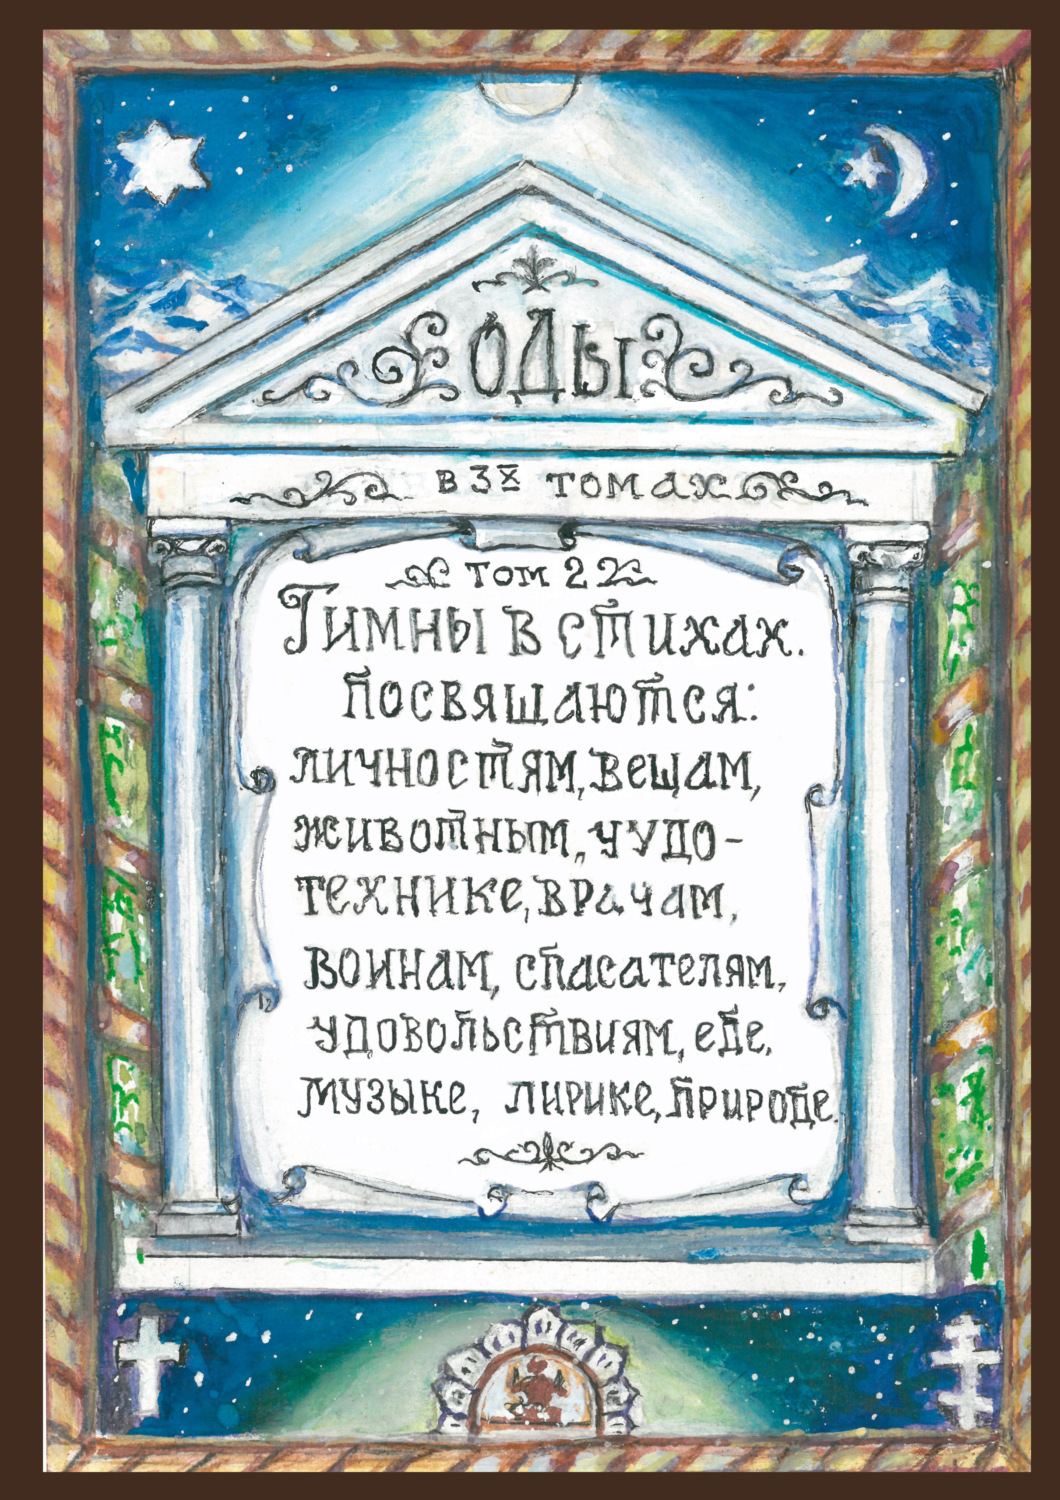 ОДЫ
в 3х томах
том 2
Гимны в стихах.
Посвящаются:
личностям, вещам,
животным, чудо-
технике, врачам,
воинам, спасателям,
удовольствиям, еде,
музыке, лирике, природе.